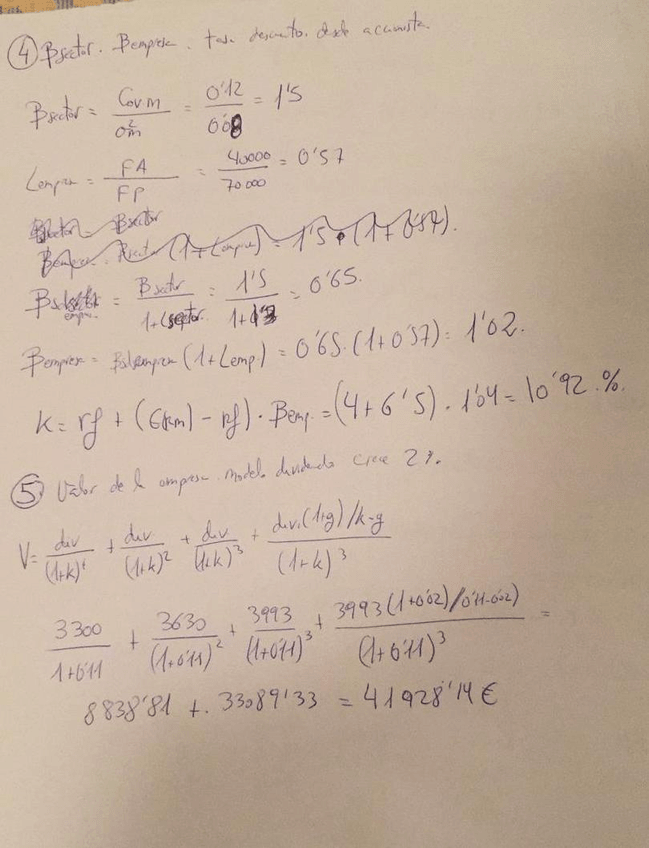 ④ βsector. βempresa. tasa descuento. desde accionista.
βsector = Cov.m / σ²m = 0'12 / 0'08 = 1'5
Lempresa = FA / FP = 40000 / 70.000 = 0'57
βsector
βempresa = (1+Lempresa) = 1'5 · (1+0'57).
empre. = βsector / 1+Lsector. = 1'5 / = 0'65.
βempresa = (1+Lemp) = 0'65. (1+0'57) = 1'02.
K = rf + (E(rm) - rf) · βemp. = (4+6'5) · 1'04 = 10'92.%.
⑤ Valor de la empresa. modelo dividendo crece 2%.
V = div / (1+k)¹ + div / (1+k)² + div / (1+k)³ + div.(1+g)/k-g / (1+k)³
3300 / 1+0'11 + 3630 / (1+0'11)² + 3993 / (1+0'11)³ + 3993(1+0'02)/0'11-0'02) / (1+0'11)³ =
8838'81 +. 33089'33 = 41928'14 €